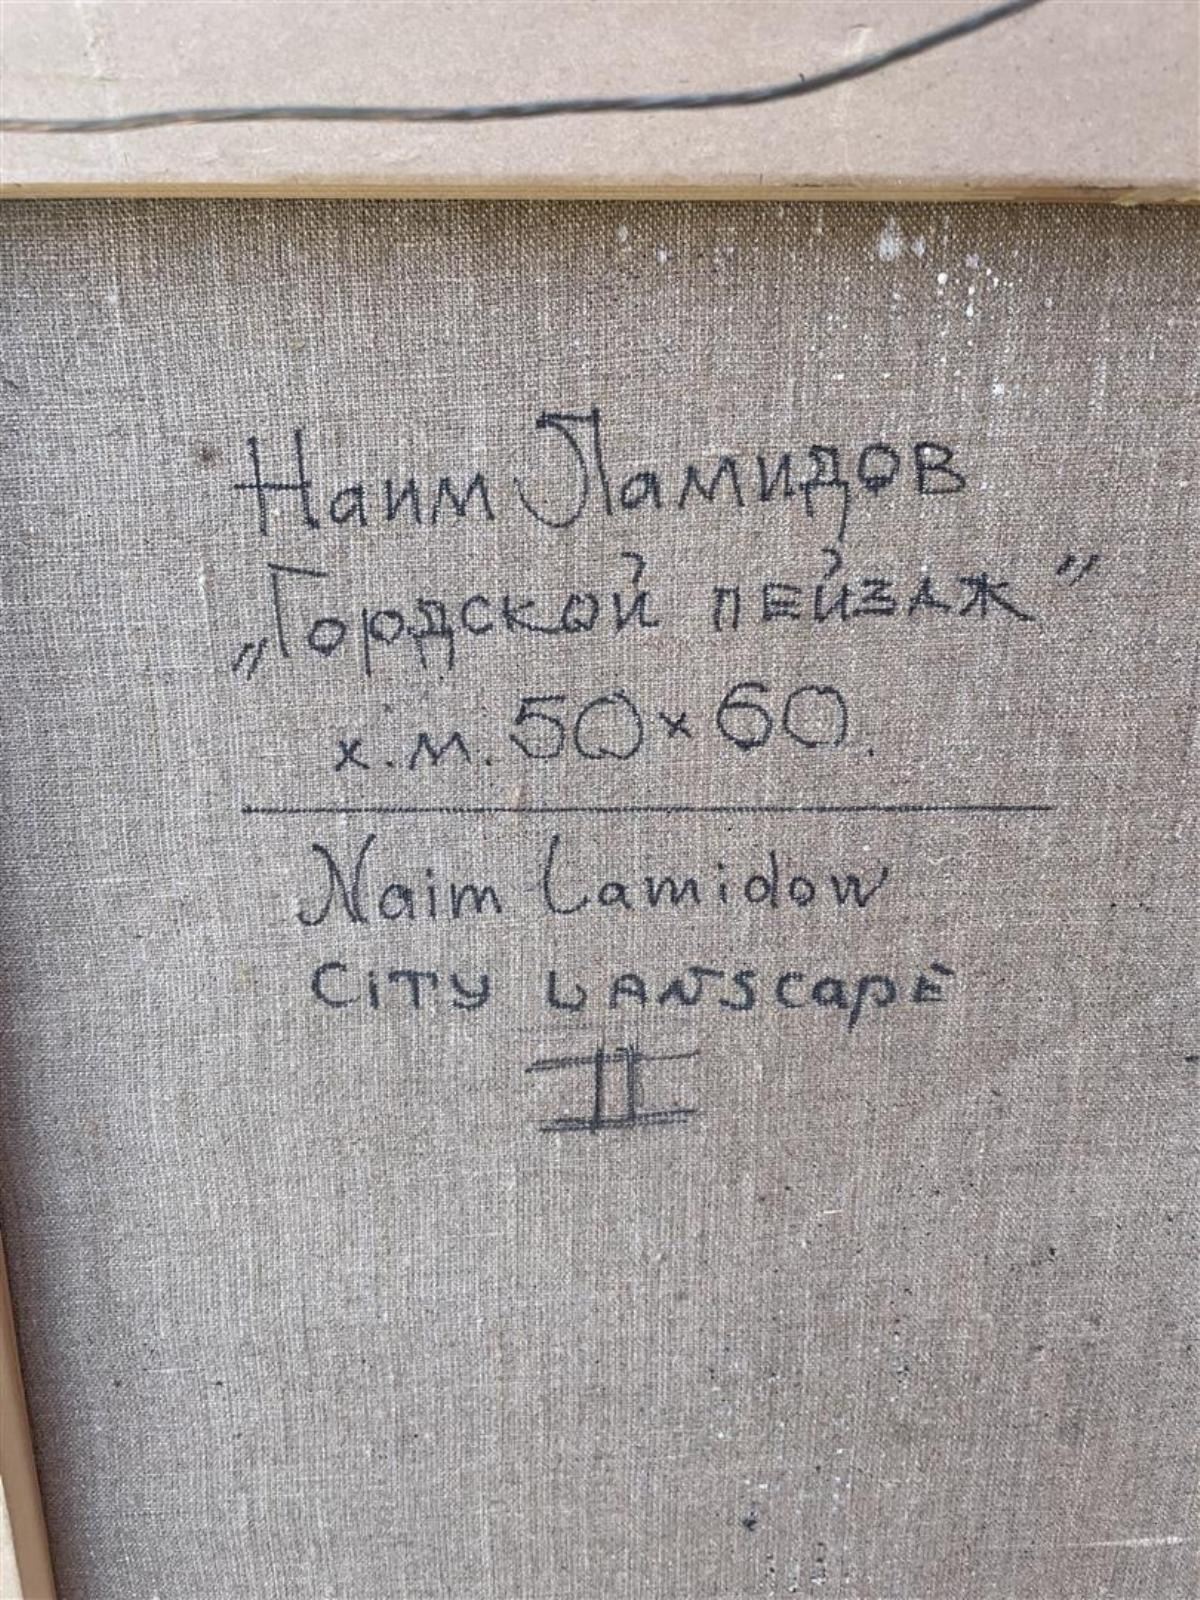 Наим Ламидов
„Гордской пейзаж”
х.м. 50×60.
Naim Lamidow
CiTY LANSCapE
II